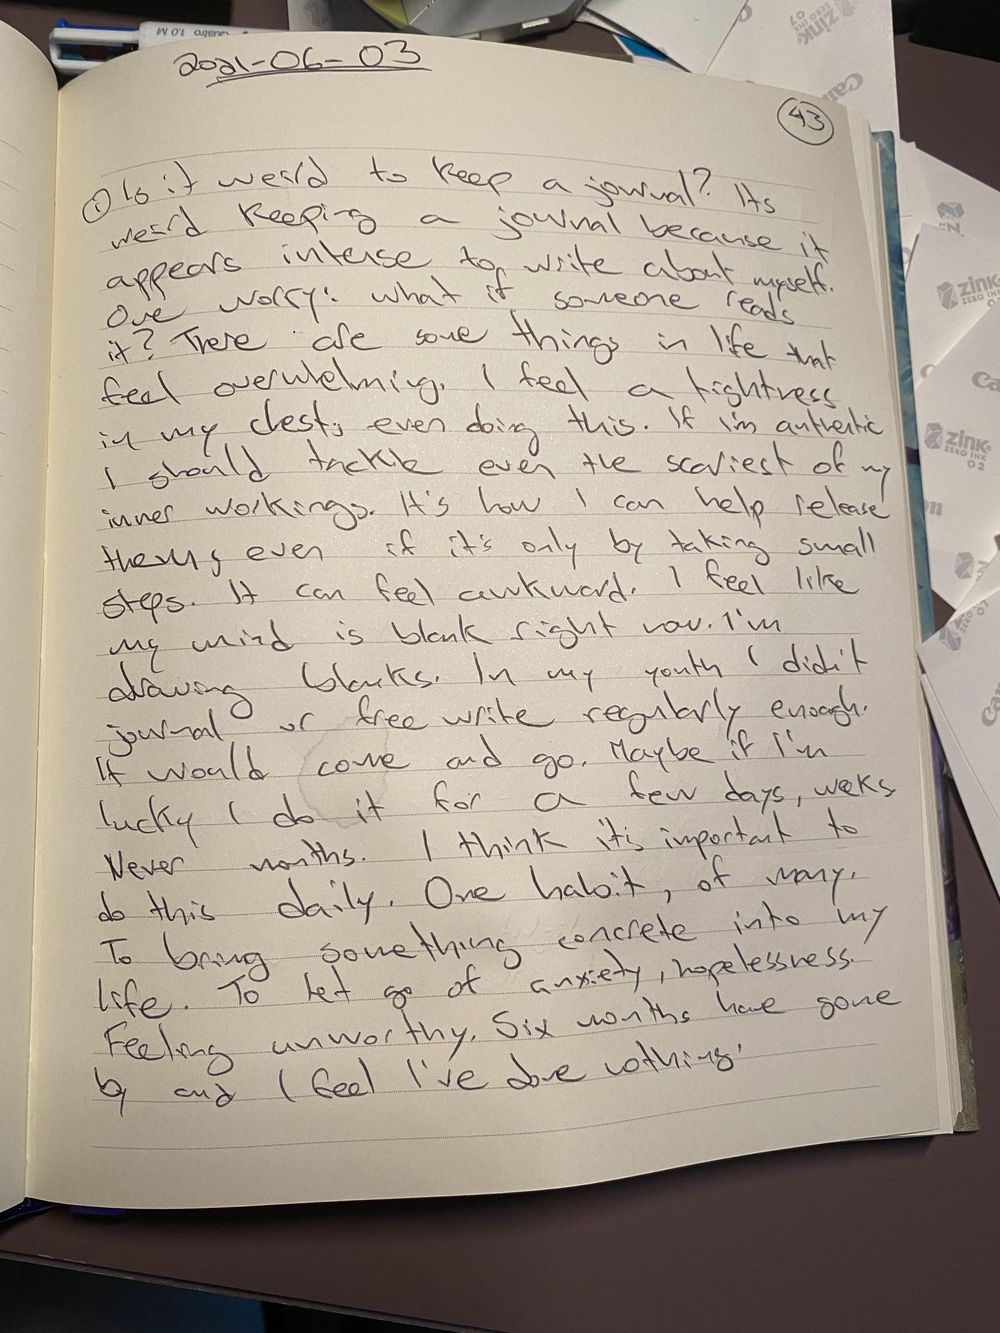 Quatro 1.0 M
2021-06-03
43
① Is it weird to keep a journal? Its
weird keeping a journal because it
appears intense to write about myself.
One worry: what if someone reads
it? There are some things in life that
feel overwelming. I feel a tightness
in my chest, even doing this. If I'm authentic
I should tackle even the scariest of my
inner workings. It's how I can help release
them, even if it's only by taking small
steps. It can feel awkward. I feel like
my mind is blank right now. I'm
drawing blanks. In my youth I didn't
journal or free write regularly enough.
It would come and go. Maybe if I'm
lucky I do it for a few days, weeks
Never months. I think it's important to
do this daily. One habit, of many.
To bring something concrete into my
life. To let go of anxiety, hopelessness.
Feeling unworthy. Six months have gone
by and I feel I've done nothing.
zink
ZERO INK
07
zink
ZERO INK
zink
ZERO INK
02